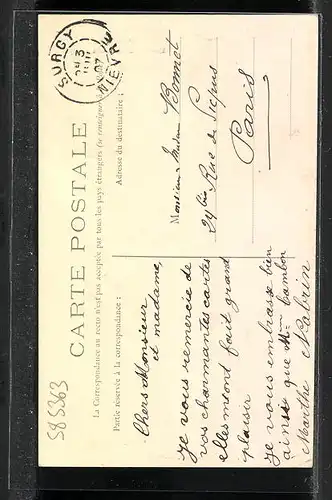 SURGY
NIÈVRE
07
CARTE POSTALE
La Correspondance au recto n'est pas acceptée par tous les pays étrangers (se renseigner
Partie réservée à la correspondance :
Adresse du destinataire :
Chers Monsieur
et madame,
je vous remercie de
vos charmantes cartes
elles m'ont fait grand
plaisir
je vous embrasse bien
ainsi que Mme Cambon
Marthe
Monsieur Madame Bonnot
24 bis Rue de Picpus
Paris
585363